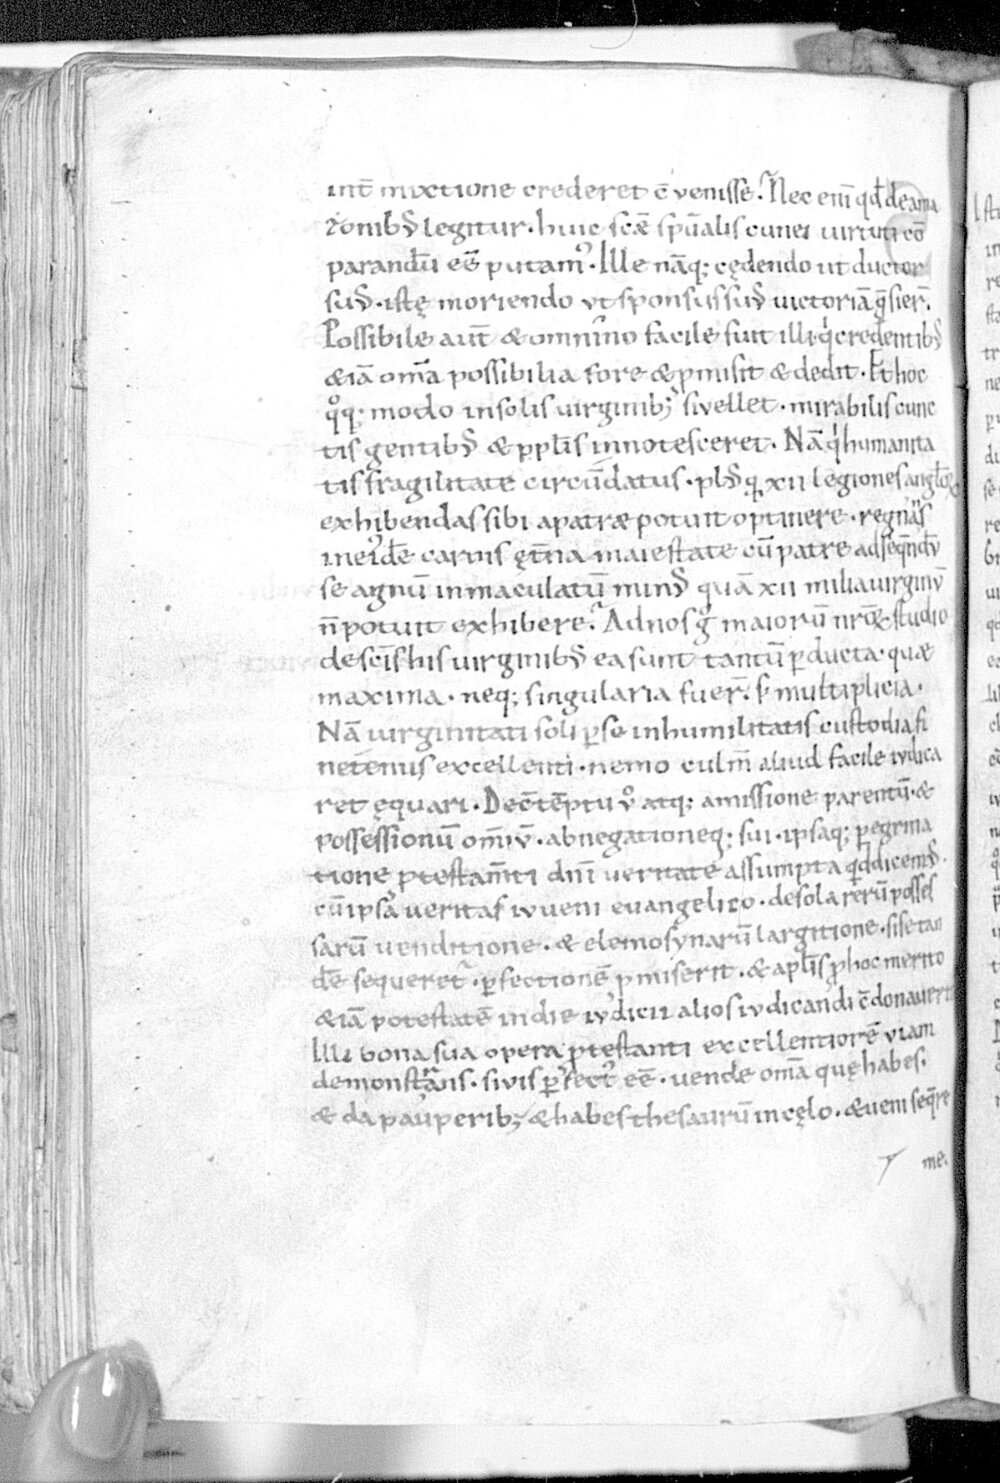 int̄ mixtione crederet̄ c̄ venisse. Nec enī qd̄ de ama
zonibꝰ legitur. huic scǣ spūalis cunei uirtuti cō
parandū eē̄ putamꝰ. Ille nāq; cędendo ut ductor
suꝰ. istę moriendo vt sponsus suꝰ uictoriā q̄sier̄.
Possibile aut̄ & omnino facile fuit illi. qͥ credentibꝰ
& iā om̄a possibilia fore & ꝓmisit & dedit. Et hoc
qͦq; modo in solis uirginib; si vellet. mirabilis cunc
tis gentibꝰ & pplis̄ innotesceret. Nā qͥ humanita
tis fragilitate circūdatus. plꝰ q̄ xii legiones anglo̅ꝝ
exhibendas sibi a patre potuit optinere. regnās
in eiꝰdē carnis ęt̄na maiestate cū patre ad seqn̄dū
se agnū inmaculatū minꝰ quā xii milia uirginū
n̄ potuit exhibere. Ad nos gͦ maiorū nr̄oꝝ studio
de scīs his uirginibꝰ ea sunt tantū ꝑducta. quæ
maxima. neq; singularia fuer̄. s; multiplicia.
Nā uirginitati soli ꝑ se in humilitatis custodia fi
netenus excellenti. nemo culm̄ aliud facile iudica
ret ęquari. De ctēptu ū̊ atq; amissione parentū. &
possessionū om̄iū. abnegationeq; sui. ipsaq; ꝑegrina
tione ptestam̄ti dnī ueritate assumpta qd̄ dicemꝰ.
cū ipsa ueritas iuueni euangelico. de sola rerū posses
sarū uenditione. & elemosynarū largitione. si se tan
dē sequeret̄. ꝑfectionē ꝓmiserit. & aplis̄ ꝓ hoc merito
& iā potestatē in die iudicii alios iudicandi c̄donauerit
Illi bona sua opera ptęstanti excellentiorē viam
demonstrans. si vis ꝑfectꝰ eē̄. uende om̄a quę habes.
& da pauperib; & habes thesaurū in cęlo. & ueni seq̄re
me.